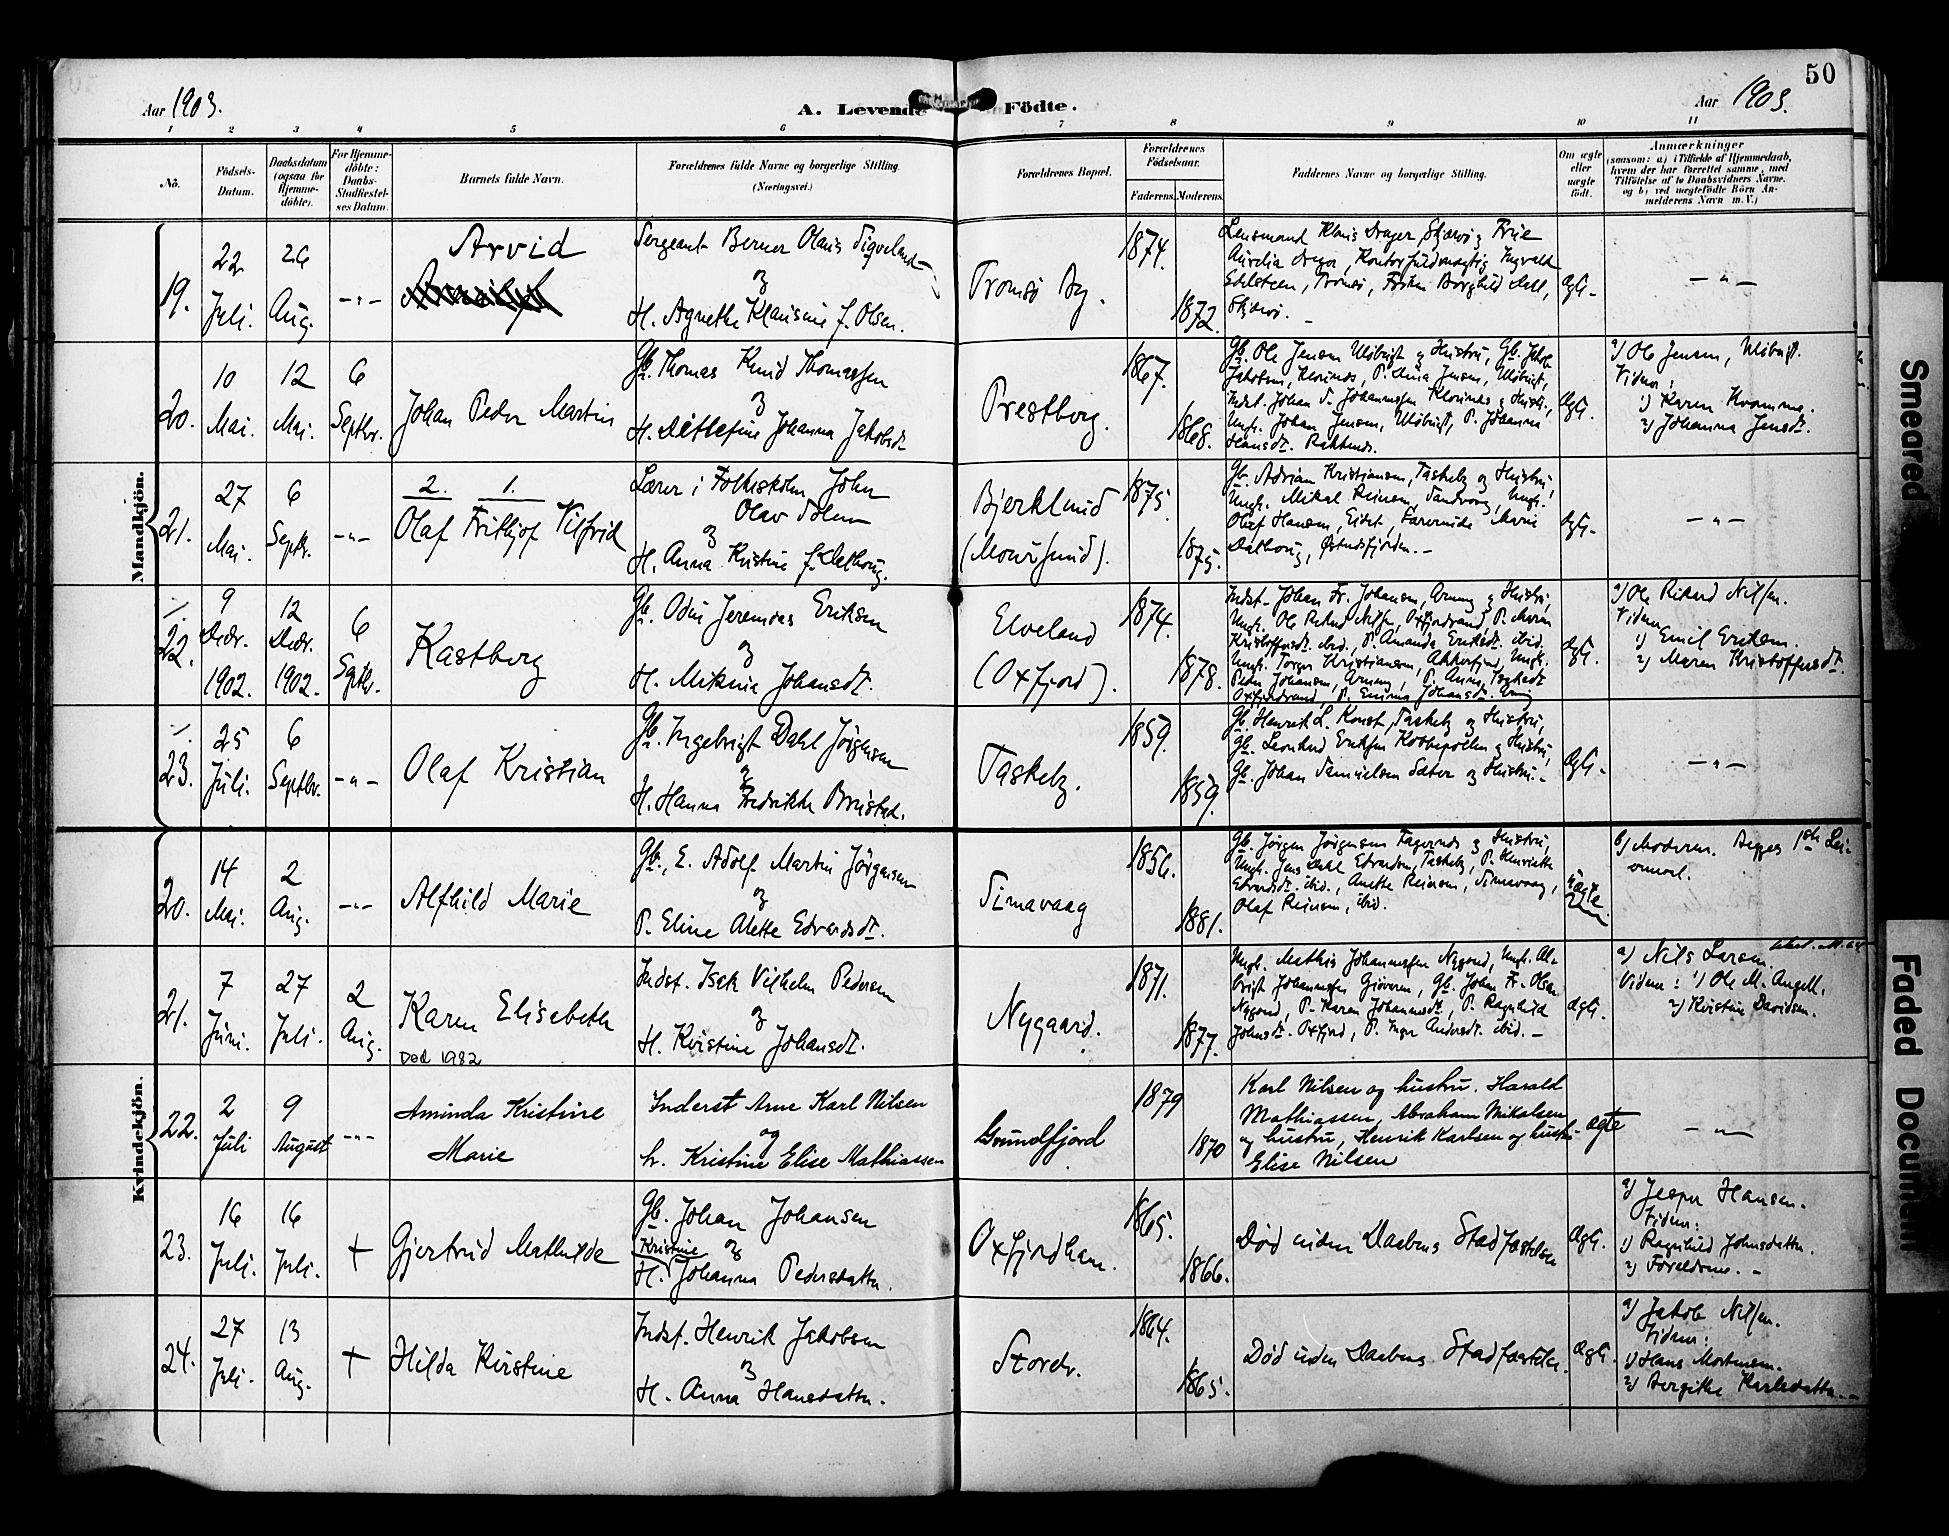 50
Aar 1903.
A. Levende Födte.
Aar 1903.
1 2 3 4 5 6 7 8 9 10 11
No.
Födsels-Datum.
Daabsdatum (ogsaa for Hjemme-döbte).
For Hjemme-döbte: Daabs-Stadfæstel-ses Datum.
Barnets fulde Navn.
Forældrenes fulde Navne og borgerlige Stilling. (Næringsvei.)
Forældrenes Bopæl.
Forældrenes Födselsaar.
Faderens. Moderens.
Faddernes Navne og borgerlige Stilling.
Om ægte eller uægte födt.
Anmærkninger
(saasom: a) i Tilfælde af Hjemmedaab, hvem der har forrettet samme, med Tilföielse af to Daabsvidners Navne. og b) ved uægtefödte Börn An-melderens Navn m. V.)
Mandkjön.
19.
22 Juli.
26 Aug.
-"-
Arvid
Sergeant Berner Olaus Sigveland
og
H. Agnethe Klausine f. Olsen.
Tromsö By.
1874.
1872.
Lensmand Klaus Drager, Skjervö, Frue
Aurelia Drager, Kontorfuldmægtig Ingvald
Edelsteen, Tromsö, Fröken Borghild Dahl,
Skjervö.
Ægt.
-"-
20.
10 Mai.
12 Mai.
6 Septbr.
Johan Peder Martin
Gb. Thomas Knud Thomassen
og
H. Ditlefine Johanna Jakobsdt.
Prestberg.
1867.
1868.
Gb. Ole Jensen Uløbugt og Hustru, Gb. Jakob
Jakobsen, Klorinds, P. Anna Jensen, Uløbugt,
Indst. Johan S. Johannessen Klorinds og Hustru,
Ungk. Johan Jensen, Uløbugt, P. Johanna
Hansdt. Rakkenes.
Ægt.
a) Ole Jensen, Uløbugt.
Vidner:
1) Karen Kromme.
2) Johanna Jensdt.
21.
27 Mai.
6 Septb.
-"-
2. 1.
Olaf Frithjof Vilfrid
Lærer i Folkeskolen John
Olav Solem
og
H. Anna Kristine f. Dalborg.
Bjerklund
(Moursund).
1875.
1875.
Gb. Adrian Kristiansen, Taskeby og Hustru,
Ungk. Mikal Reiersen, Sandvaag, Ungk.
Olaf Hansen, Eidet, Marie
Dalborg,
Ægt.
-"-
22.
9 Decbr. 1902.
12 Decbr. 1902.
6 Septbr.
Kastberg
Gb. Odin Jeremias Eriksen
og
H. Mikina Johansdt.
Elveland
(Oxfjord).
1874.
1878.
Indst. Johan Fr. Johansen, og Hustru,
Ungk. Ole Rikard Nilsen, Oxfjordvand, P. Maren
Kristoffersdt. ibid., P. Amanda Eriksdt. ibid.
Ungk. Torger Kristiansen, Akkarfjord, Ungk.
Peder Johansen, P. Anna
Oxfjordvand, P. Emma Johansdt.
Ægt.
a) Ole Rikard Nilsen.
Vidner
1) Emil Eriksen.
2) Maren Kristoffersdt.
23.
25 Juli.
6 Septbr.
-"-
Olaf Kristian
Gb. Ingebrigt Dahl Jörgensen
og
H. Hanna Fredrikke Brustad.
Taskeby.
1859.
1859.
Gb. Henrik L. Konst, Taskeby og Hustru,
Gb. Leonhard Eriksen Kobbepollen og Hustru,
Gb. Johan Samuelsen Sæter og Hustru.
Ægt.
-"-
Kvindekjön.
20.
14 Mai.
2 Aug.
-"-
Alfhild Marie
Gb., E. Adolf Martin Jörgensen
og
P. Eline Alette Edvardsdt.
Simavaag
1856.
1881.
Gb. Jörgen Jörgensen Fagernes og Hustru,
Ungk. Jens Dahl Edvardsen, Taskeby, P. Henriette
Edvardsdt. ibid., Anette Reiersen, Simavaag,
Olaf Reiersen, ibid.
uægte
b) Moderen. Begges 1ste Lei-
ermaal.
21.
7 Juni.
27 Juli.
2 Aug.
Karen Elisabeth
Død 1982
Indst. Isak Vilhelm Pedersen
og
H. Kristine Johansdt.
Nygaard.
1871.
1877.
Ungk. Mathis Johannessen Nygaard, Ungk. Al-
brigt Johannessen Giæveren, Gb. John Fr. Olsen
Nygaard, P. Karen Johannesdt., P. Ragnhild
Johnsdt. Oxfjord, P. Inger Andersdt. ibid.
Ægt.
a) Nils Larsen.
Vidner: 1) Ole M. Angell.
2) Kristine Davidsen.
22.
2 Juli
9 August
-"-
Aminda Kristine
Marie
Inderst Arne Karl Nilsen
og
h. Kristine Elise Mathiassen
Grundfjord
1879
1870
Karl Nilsen og hustru. Harald
Mathiassen, Abraham Mikalsen
og hustru, Henrik Karlsen og hustru
Elise Nilsen
ægte
-"-
23.
16 Juli.
16 Juli.
+
Gjertrud Mathilde
Gb. Johan Johansen
Kristine og
H. Johanna Pedersdatter.
Oxfjordhavn.
1865.
1866.
Død uden Daabens Stadfæstelse
Ægt.
a) Jesper Hansen.
Vidner:
1) Ragnhild Johnsdatter.
2) Forældrene.
24.
27 Juli.
13 Aug.
+
Hilda Kristine
Indst. Henrik Jakobsen
og
H. Anna Hansdatter.
Storelv.
1864.
1865.
Død uden Daabens Stadfæstelse.
Ægt.
a) Jakob Nilsen.
Vidner:
1) Hans Mortensen.
2) Bergithe Karlsdatter.
Smeared
Faded Document